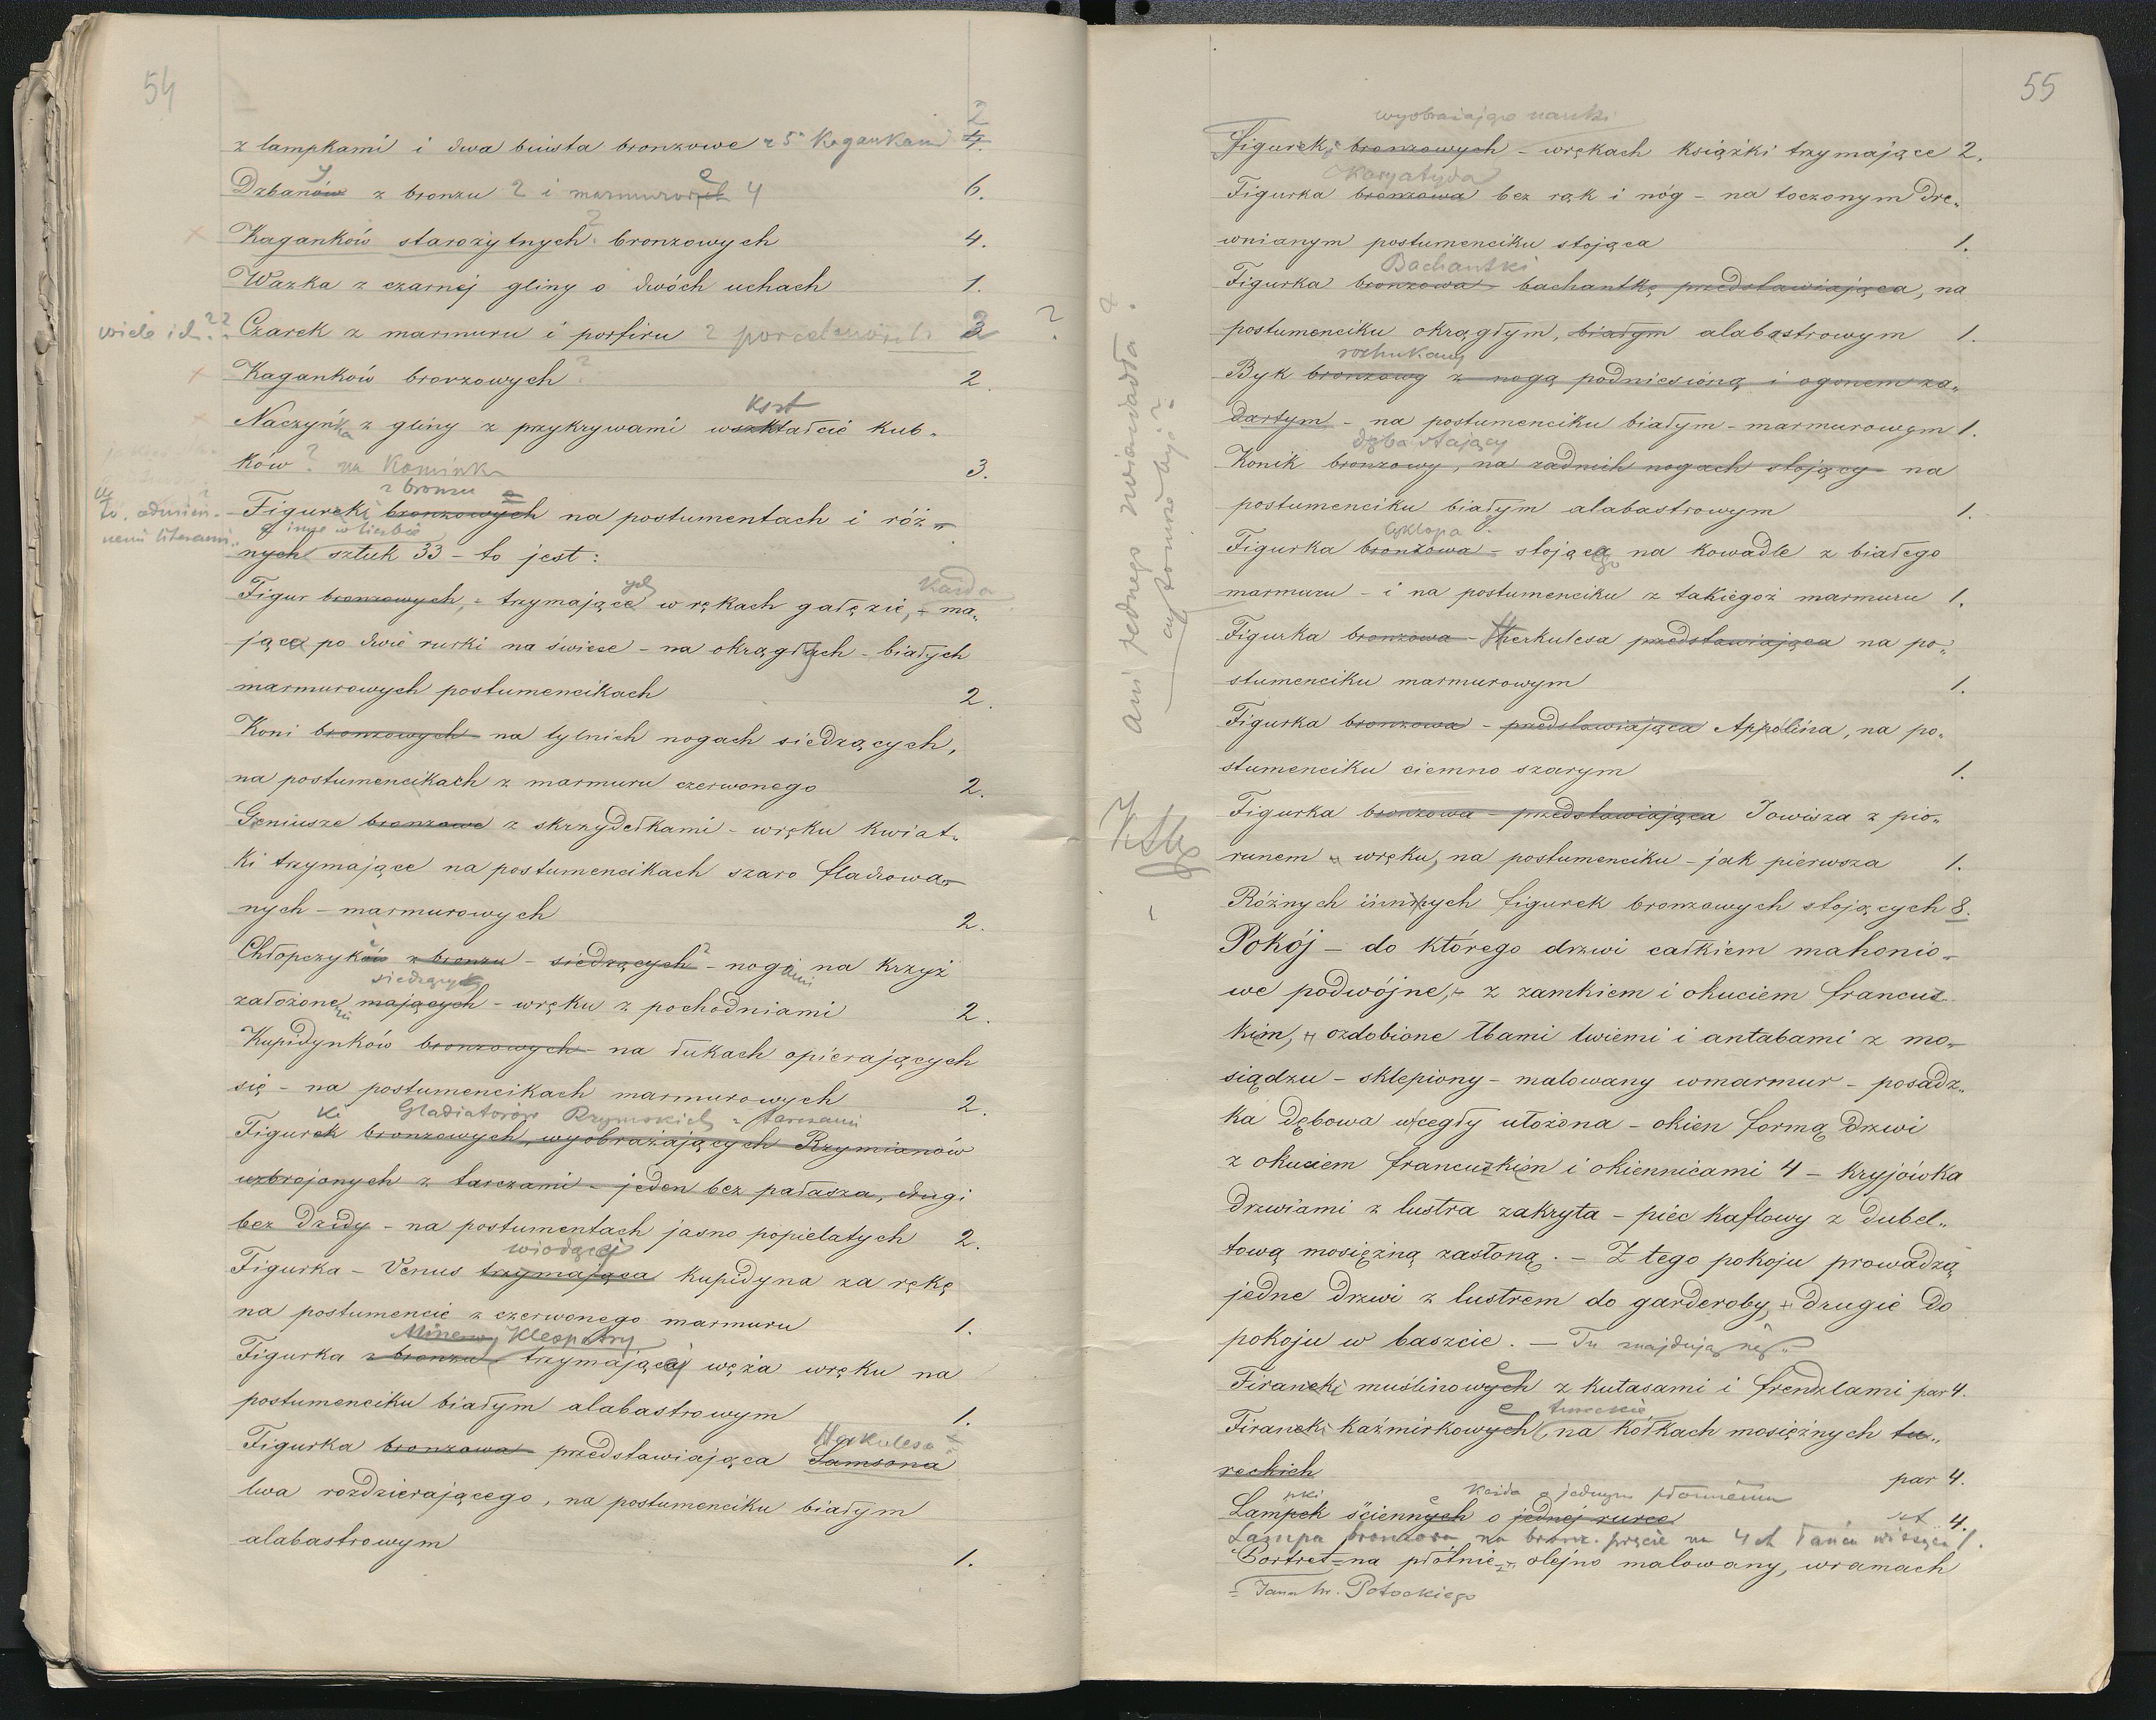 54
2
z lampkami i dwa biusta bronzowe z 5 Kagankami 4.
Dzbanów y z bronzu 2 i marmurowych e 4 6.
Kaganków starożytnych ? bronzowych 4.
Wazka z czarnej gliny o dwóch uchach 1.
wiele ich ?? Czarek z marmuru i porfiru 2 porcelanowe 3 ?
Kaganków bronzowych ? 2.
Kszt
Naczyńka z gliny z przykrywami wszktałcie kub-
ków ? na Kominku 3.
z bronzu e
Figurcki bronzowych na postumentach i róż-
inne w liczbie
nych sztuk 33 – to jest:
ych Każda
Figur bronzowych, – trzymające w rękach gałęzie, – ma-
jące po dwie rurki na świece – na okrągłych – białych
marmurowych postumencikach 2.
Koni bronzowych – na tylnich nogach siedzących,
na postumencikach z marmuru czerwonego 2.
Geniusze bronzowe z skrzydełkami – wręku kwiat-
ki trzymające na postumencikach szaro fladrowa-
nych – marmurowych 2.
Chłopczyków z bronzu – siedzących ? – nogi ami na krzyż
siedzących
założone mi mających – wręku z pochodniami 2.
Kupidynków bronzowych – na łukach opierających
się – na postumencikach marmurowych 2.
ki Gladiatorów Rzymskich z tarczami
Figurek bronzowych, wyobrażających Rzymianów
uzbrojonych z tarczami – jeden bez pałasza, drugi
bez dzidy – na postumentach jasno popielatych 2.
wiodącej
Figurka – Venus trzymająca kupidyna za rękę
na postumencie z czerwonego marmuru 1.
Minerwy Kleopatry
Figurka z bronzu, trzymającej węża wręku na
postumenciku białym alabastrowym 1.
Herkulesa
Figurka bronzowa – przedstawiająca Samsona
lwa rozdzierającego, na postumenciku białym
alabastrowym 1.
55
wyobrażające nauki
Figurek i bronzowych – wrękach książki trzymające 2.
Karyatyda
Figurka bronzowa bez rąk i nóg – na toczonym dre-
wnianym postumenciku stojąca 1.
Bachantki
Figurka bronzowa – bachantkę przedstawiająca, na
postumenciku okrągłym, białym alabastrowym 1.
rozhukany
Byk bronzowy z nogą podniesioną i ogonem za-
dartym – na postumenciku białym – marmurowym 1.
dęba stający
Konik bronzowy, na zadnich nogach stojący – na
postumenciku białym alabastrowym 1.
Cyklopa
Figurka bronzowa – stojąca ego na kowadle z białego
marmuru – i na postumenciku z takiegoż marmuru 1.
Figurka bronzowa – Herkulesa przedstawiająca na po-
stumenciku marmurowym 1.
Figurka bronzowa – przedstawiająca Appolina, na po-
stumenciku ciemno szarym 1.
Figurka bronzowa – przedstawiająca Jowisza z pio-
runem w wręku, na postumenciku – jak pierwsza 1.
Różnych innych figurek bronzowych stojących 8.
Pokój – do którego drzwi całkiem mahonio-
we podwójne, – z zamkiem i okuciem francus-
kim, – ozdobione łbami lwiemi i antabami z mo-
siądzu – sklepiony – malowany wmarmur – posadz-
ka dębowa w cegły ułożona – okien formą drzwi
z okuciem francuzkim i okiennicami 4 – kryjówka
drzwiami z lustra zakryta – piec kaflowy z dubel-
tową mosiężną zasłoną. – Z tego pokoju prowadzą
jedne drzwi z lustrem do garderoby, – drugie do
pokoju w baszcie. – Tu znajdują się:
Firanki muślinowych e z kutasami i frendzlami par 4.
e tureckie
Firanki kaźmirkowych, na kółkach mosiężnych tu-
reckich par 4.
pki e Każda o jednym płomieniu
Lampek ściennych o jednej rurce szt. 4.
Lampa bronzowa na bronz. pręcie na 4ch łańcu wisząca 1.
Portret – na płótnie – olejno malowany, wramach
– Jana hr. Potockiego
ani jednego zwierciadła ?
czy to może być ?